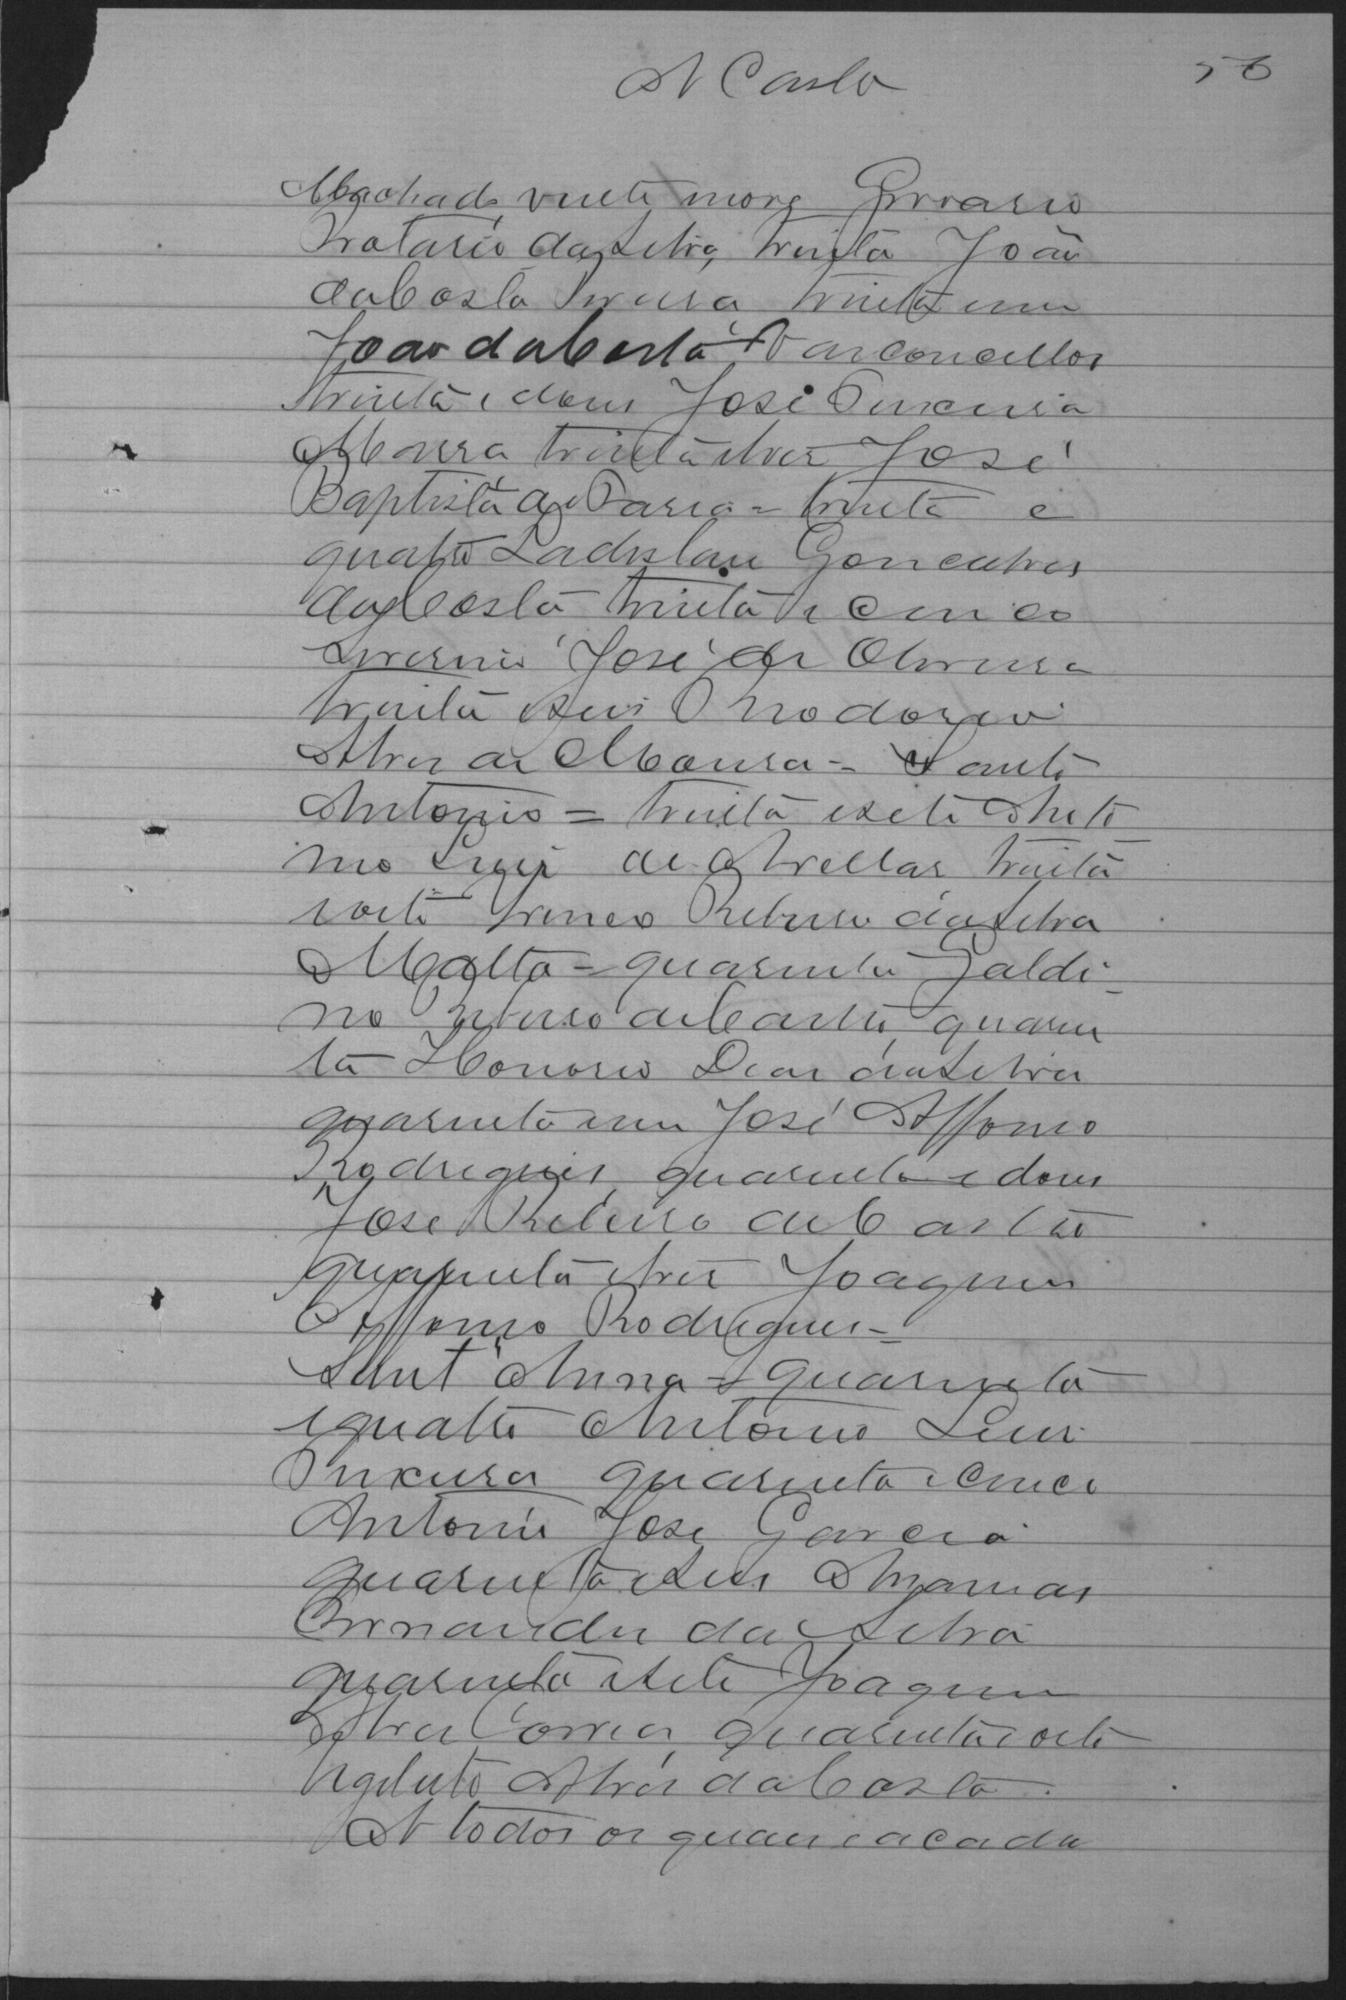 A Casto 56
Machado, vinte nove Gervasio
da Silva, trinta João
da Costa trinta um
João da Costa Vasconcellos
trinta e dous José Teixeira
Moura trinta e tres José
Baptista de Faria = trinta e
quatro Ladislau Goncalves
da Costa trinta e cinco
Liverino José de Oliveira
trinta e seis Theodoro
Alves de Moura = Santo
Antonio = trinta e sete Anto
nio Luiz de Avellar trinta
e oito Ribeiro da Silva
Malta = quarenta Galdi-
no Ribeiro de Castro, quaren
ta Honorio Dias da Silva
quarenta um José Affonso
Rodrigues, quarenta e dous
José Ribeiro de Castro
quarenta e tres Joaquim
Affonso Rodrigues =
Sant'Anna = quarenta
e quatro Antonio Luis
Teixeira quarenta e cinco
Antonio José Garcia
quarenta e seis Ananias
Fernandes da Silva
quarenta e sete Joaquim
Silva Correa, quarenta e oito
Alves da Costa.
A todos os quaes e a cada